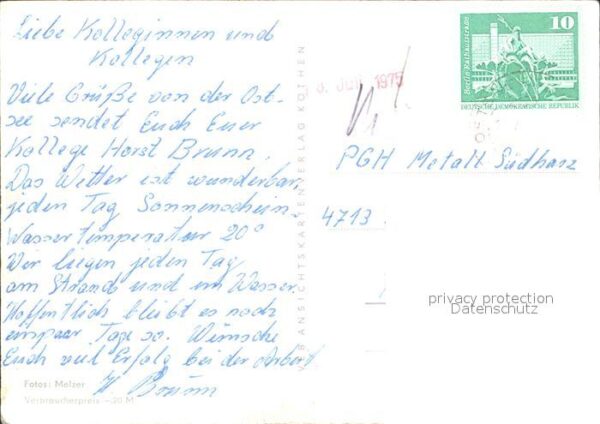 Liebe Kolleginnen und
Kollegen
Viele Grüße von der Ost-
see sendet Euch Euer
Kollege Horst Brunn.
Das Wetter ist wunderbar,
jeden Tag Sonnenschein.
Wassertemperatur 20°
Wir liegen jeden Tag
am Strand und im Wasser.
Hoffentlich bleibt es noch
ein paar Tage so. Wünsche
Euch viel Erfolg bei der Arbeit
H Brunn
Fotos: Melzer
Verbraucherpreis -,20 M
VEB ANSICHTSKARTENVERLAG KÖTHEN
1975
10
Berlin Rathausstraße
DEUTSCHE DEMOKRATISCHE REPUBLIK
PGH Metall Südharz
4713
privacy protection
Datenschutz